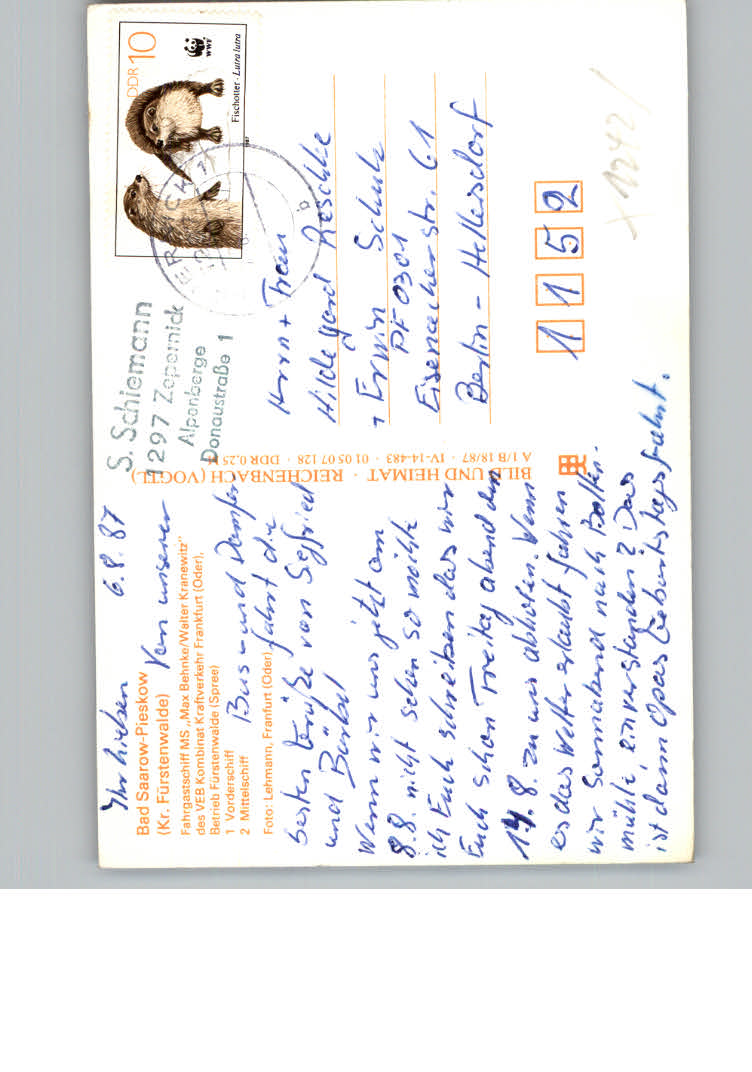 Ihr Lieben 6.8.87
Bad Saarow-Pieskow
(Kr. Fürstenwalde)
Von unserer
Fahrgastschiff MS „Max Behnke/Walter Kranewitz"
des VEB Kombinat Kraftverkehr Frankfurt (Oder),
Betrieb Fürstenwalde (Spree)
1 Vorderschiff
2 Mittelschiff
Bus und Dampfer
Foto: Lehmann, Franfurt (Oder)
fahrt die
besten Grüße von Siegfried
und Bärbel
Wenn wir uns jetzt am
8.8. nicht sehen so möchte
ich Euch schreiben das wir
Euch schon Freitag abend den
14.8. zu uns abholen. Wenn
es das Wetter erlaubt fahren
wir Sonnabend nach
mühle, einverstanden? Das
ist dann Opas Geburtstagsfahrt.
BILD UND HEIMAT · REICHENBACH (VOGTL)
A 1/B 18/87 · IV-14-483 · 01 05 07 128 · DDR 0,25 M
S. Schiemann
1297 Zepernick
Alpenberge
Donaustraße 1
DDR 10
WWF
Fischotter · Lutra lutra
1987
b
Herrn + Frau
Hildegard Reschke
Erwin Schulz
PF 0301
Eisenacher str. 61
Berlin - Hellersdorf
1 1 5 2